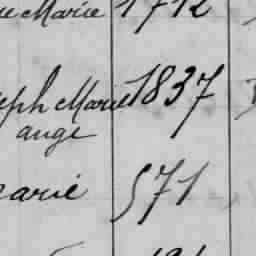 Marie 1712
eph Marie 1837
ange
arie 571